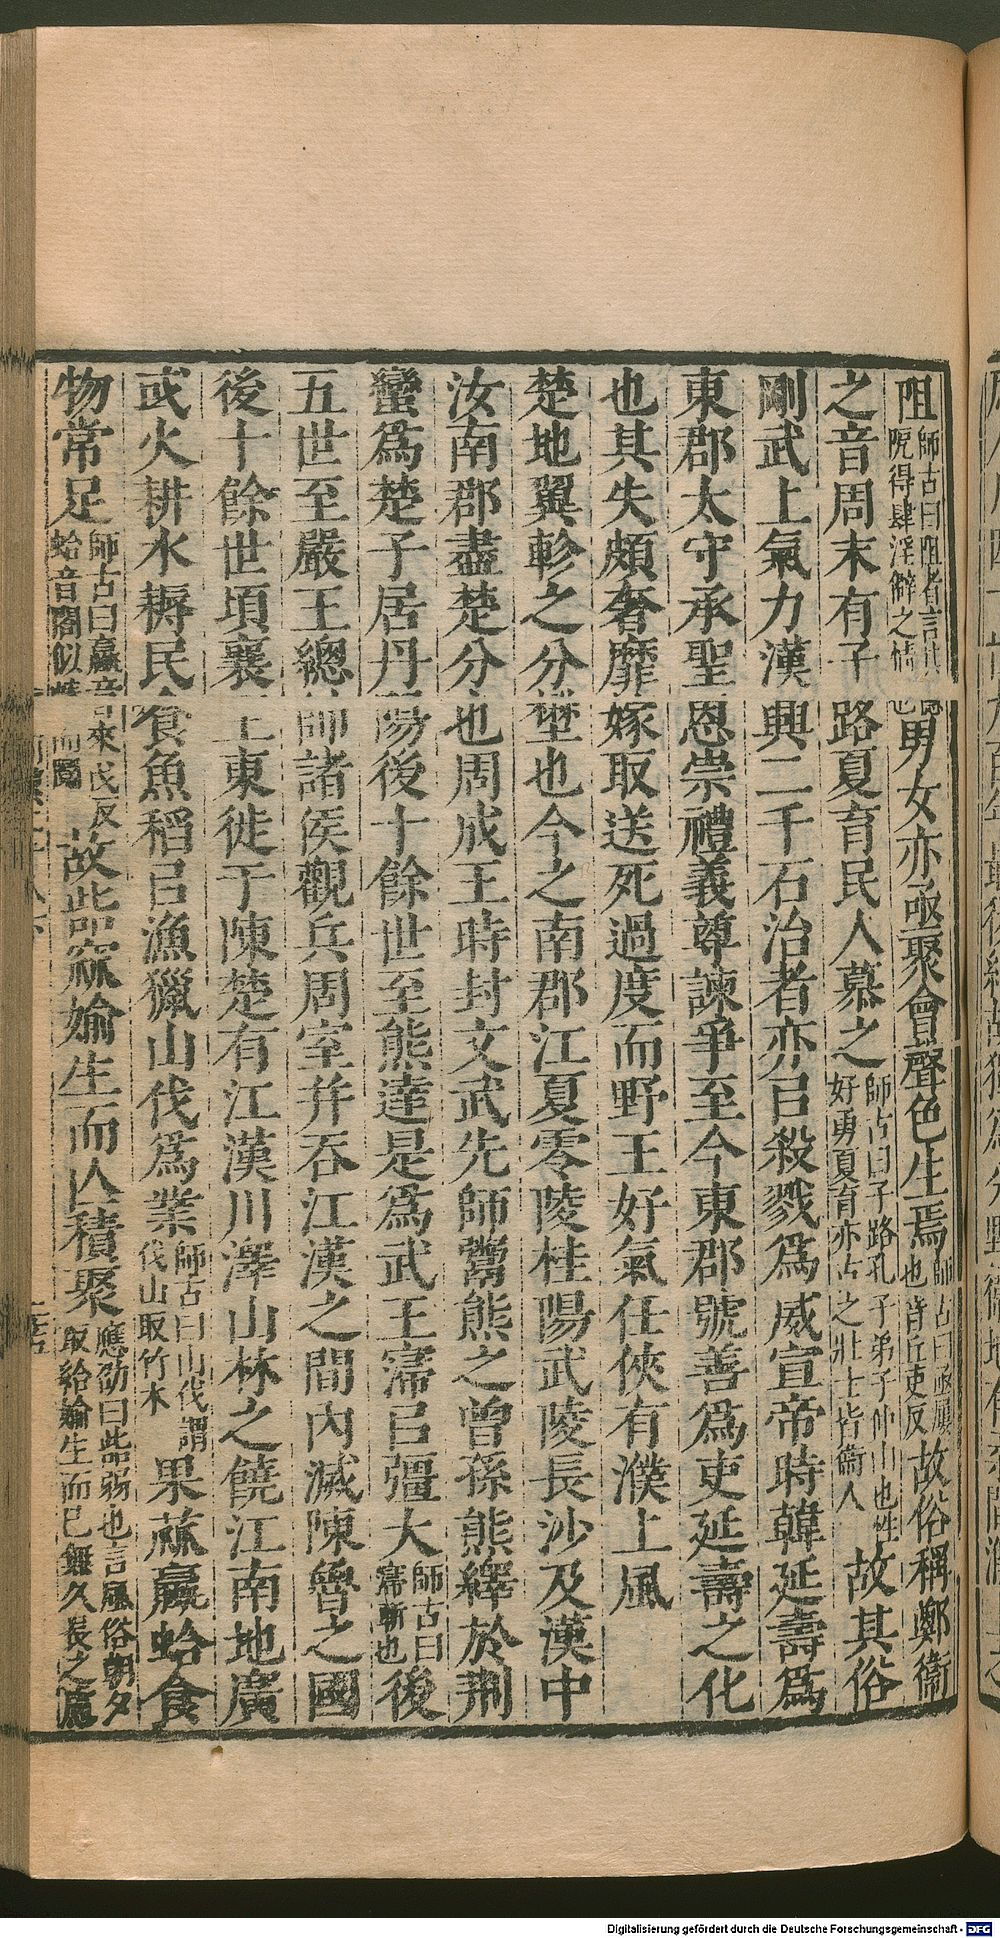 阻師古曰阻者言其隱阸得肆淫僻之情也男女亦亟聚會聲色生焉師古曰亟屢也音丘吏反故俗稱鄭衞
之音周末有子路夏育民人慕之師古曰子路孔子弟子仲山也性好勇夏育亦古之壯士皆衞人故其俗
剛武上氣力漢興二千石治者亦㠯殺戮爲威宣帝時韓延壽爲
東郡太守承聖恩崇禮義尊諫爭至今東郡號善爲吏延壽之化
也其失頗奢靡嫁取送死過度而野王好氣任俠有濮上風
楚地翼軫之分壄也今之南郡江夏零陵桂陽武陵長沙及漢中
汝南郡盡楚分也周成王時封文武先師鬻熊之曾孫熊繹於荆
蠻爲楚子居丹陽後十餘世至熊達是爲武王寖㠯彊大師古曰寖漸也後
五世至嚴王總帥諸侯觀兵周室并吞江漢之間内滅陳魯之國
後十餘世頃襄王東徙于陳楚有江漢川澤山林之饒江南地廣
或火耕水耨民食魚稻㠯漁獵山伐爲業師古曰山伐謂伐山取竹木果蓏蠃蛤食
物常足師古曰蠃音來戈反蛤音閤似蜯而圜故呰窳媮生而亡積聚應劭曰呰弱也言風俗朝夕取給媮生而已無久長之慮
Digitalisierung gefördert durch die Deutsche Forschungsgemeinschaft - DFG